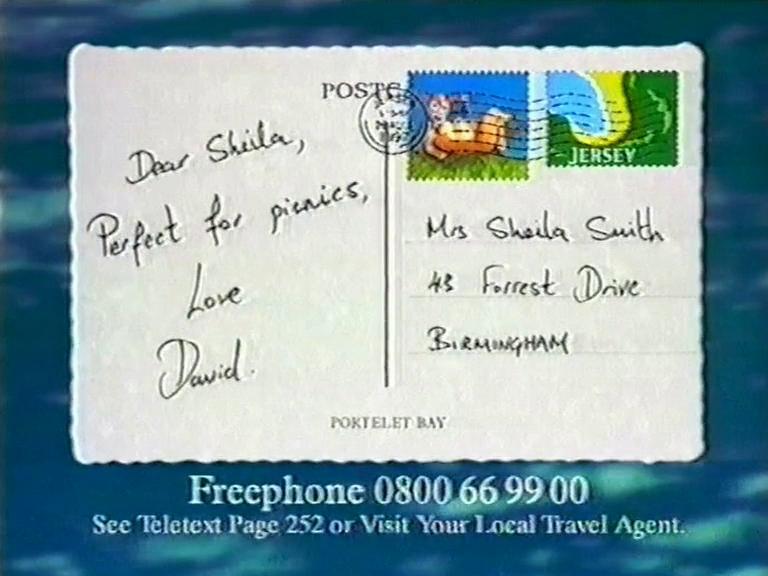 POSTC
JERSEY
Dear Sheila,
Perfect for picnics,
Love
David.
Mrs Sheila Smith
43 Forrest Drive
BIRMINGHAM
PORTELET BAY
Freephone 0800 66 99 00
See Teletext Page 252 or Visit Your Local Travel Agent.